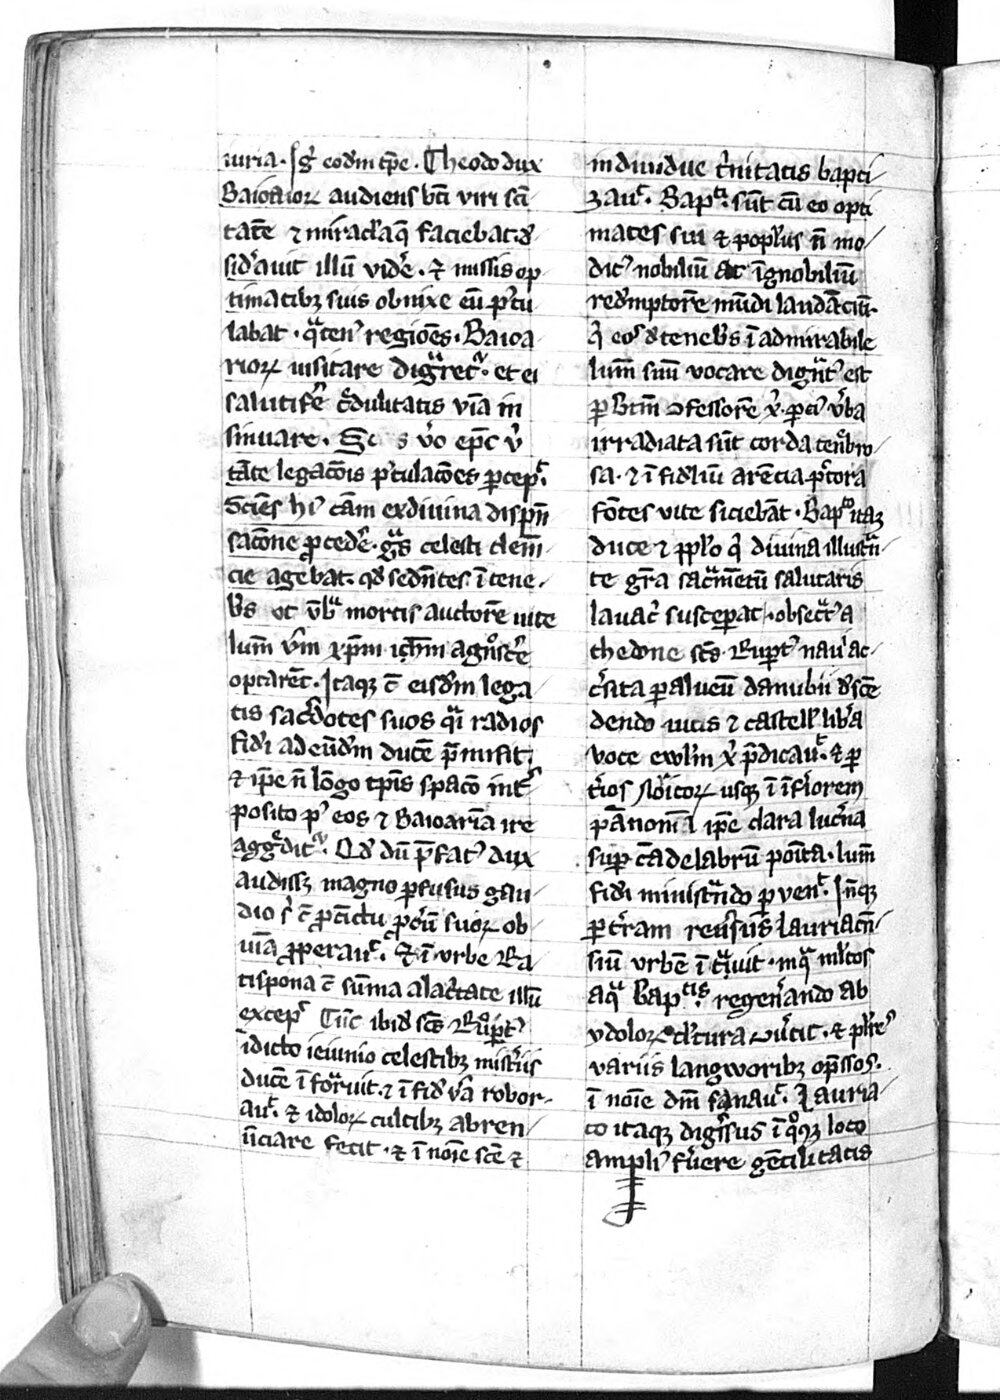 iuria. Igͬ eodm̄ tꝑe. Theodo dux
Baioarioꝝ audiens bt̄i viri sc̄i
tatē ⁊ miracl̓a q̄ faciebat. de
sid̓auit illū vid̓e. ⁊ missis op
timatibꝫ suis obnixe eū p̓tu
labat. qͣten᷒ regiōes. Baioa
rioꝝ uisitare dignͣretᷣ. et ei
salutifͤ cͤdulitatis viā in
sinuare. v̓o ep̄c v̓
tāte legac̄ois p̓tulac̄oēs ꝑcep̓t.
Sciēs hͥ cām ex diuina dispēn
sac̄one ꝓced̓e. gͣs celesti clem̄
cie agebat. qd̓ sedn̄tes ī tene
bͥs et vm̄bͣ mortis auctorē uite
lum̄ v̓m xp̄m ih̄m agnͦsc̓e
optarēt. Itaqꝫ c̄ eisd̓m lega
tis sac̓dotes suos qͣi radios
fid̓i ad eūd̓m ducē p̄misit.
⁊ ip̄e n̄ lōgo tp̄is spacō int̓
posito p᷒ eos ⁊ Baioariā ire
aggͤditᷣ. Qd̓ dū p̄fat᷒ dux
audissꝫ magno ꝑfusus gau
dio c̄ ꝓcͥctu ꝓcͥm suoꝝ ob
uiā ꝓꝑauͭ. ⁊ ī urbe Ra
tispona c̄ sūma alac̓tate illū
excep̓ Tūc ibid̓ sc̄s Ruͦꝑt᷒
īdicto ieiunio celestibꝫ mist̓iis
ducē ī formͣuit. ⁊ ī fid̓ v̓a robor
auͭ. ⁊ idoloꝝ cultibꝫ abren
ūciare fecit. ⁊ ī noīe sc̄e ⁊
indiuidue t̓nitatis bapti
zauͭ. Bapͭi sūt cū eo opti
mates sui ⁊ popl̓us n̄ mo
dic᷒ nobiliū at īgnobiliū
red̓mptorē mūdi laudāciū.
qͥ eos de teneb̓s ī admirabile
lum̄ suū vocare dignͣt᷒ est
ꝑ btm̄ ꝯfessorē xͥ. ꝑ cͥ v̓ba
irradiata sūt corda tenͤbro
sa. ⁊ ī fid̓liū arēcia pͤctora
fōtes vite siciebāt. Bapͭo itaqꝫ
duce ⁊ ꝓpl̓o qͥ diuina illustͣn
te gͬa sacͣmētū salutaris
lauacͥ susceperāt. obsecͣt᷒ a
thedone sc̄s. Ruꝑt᷒ nauͥ ac
c̓sita ꝑ alueū danubii d̓scē
dendo uicis ⁊ castell̓ lib̓a
voce ewl̓m xͥ p̄dicauͭ. ⁊ ꝑ
t̓ios noricoꝝ usqꝫ ī īf̓iorem
pānoniā ip̄e clara luc̓na
suꝑ cādelabrū poīta. lum̄
fid̓i ministͣndo ꝑuenͭ. Inͥqꝫ
ꝑ t̓ram reu̓sus lauriacn̄
siū urbē ītͣuit. inqͣ ml̓tos
aqͣ bapͭis regen̓ando ab
ydoloꝝ cl̓tura ꝯu̓tit. ⁊ pl̓res
variis langworibꝫ op̄ssos.
ī noīe dn̄i sanauͭ. Lauria
co itaqꝫ digͤssus ī qͦqꝫ loco
ampli᷒ fu̓ere gētilitatis